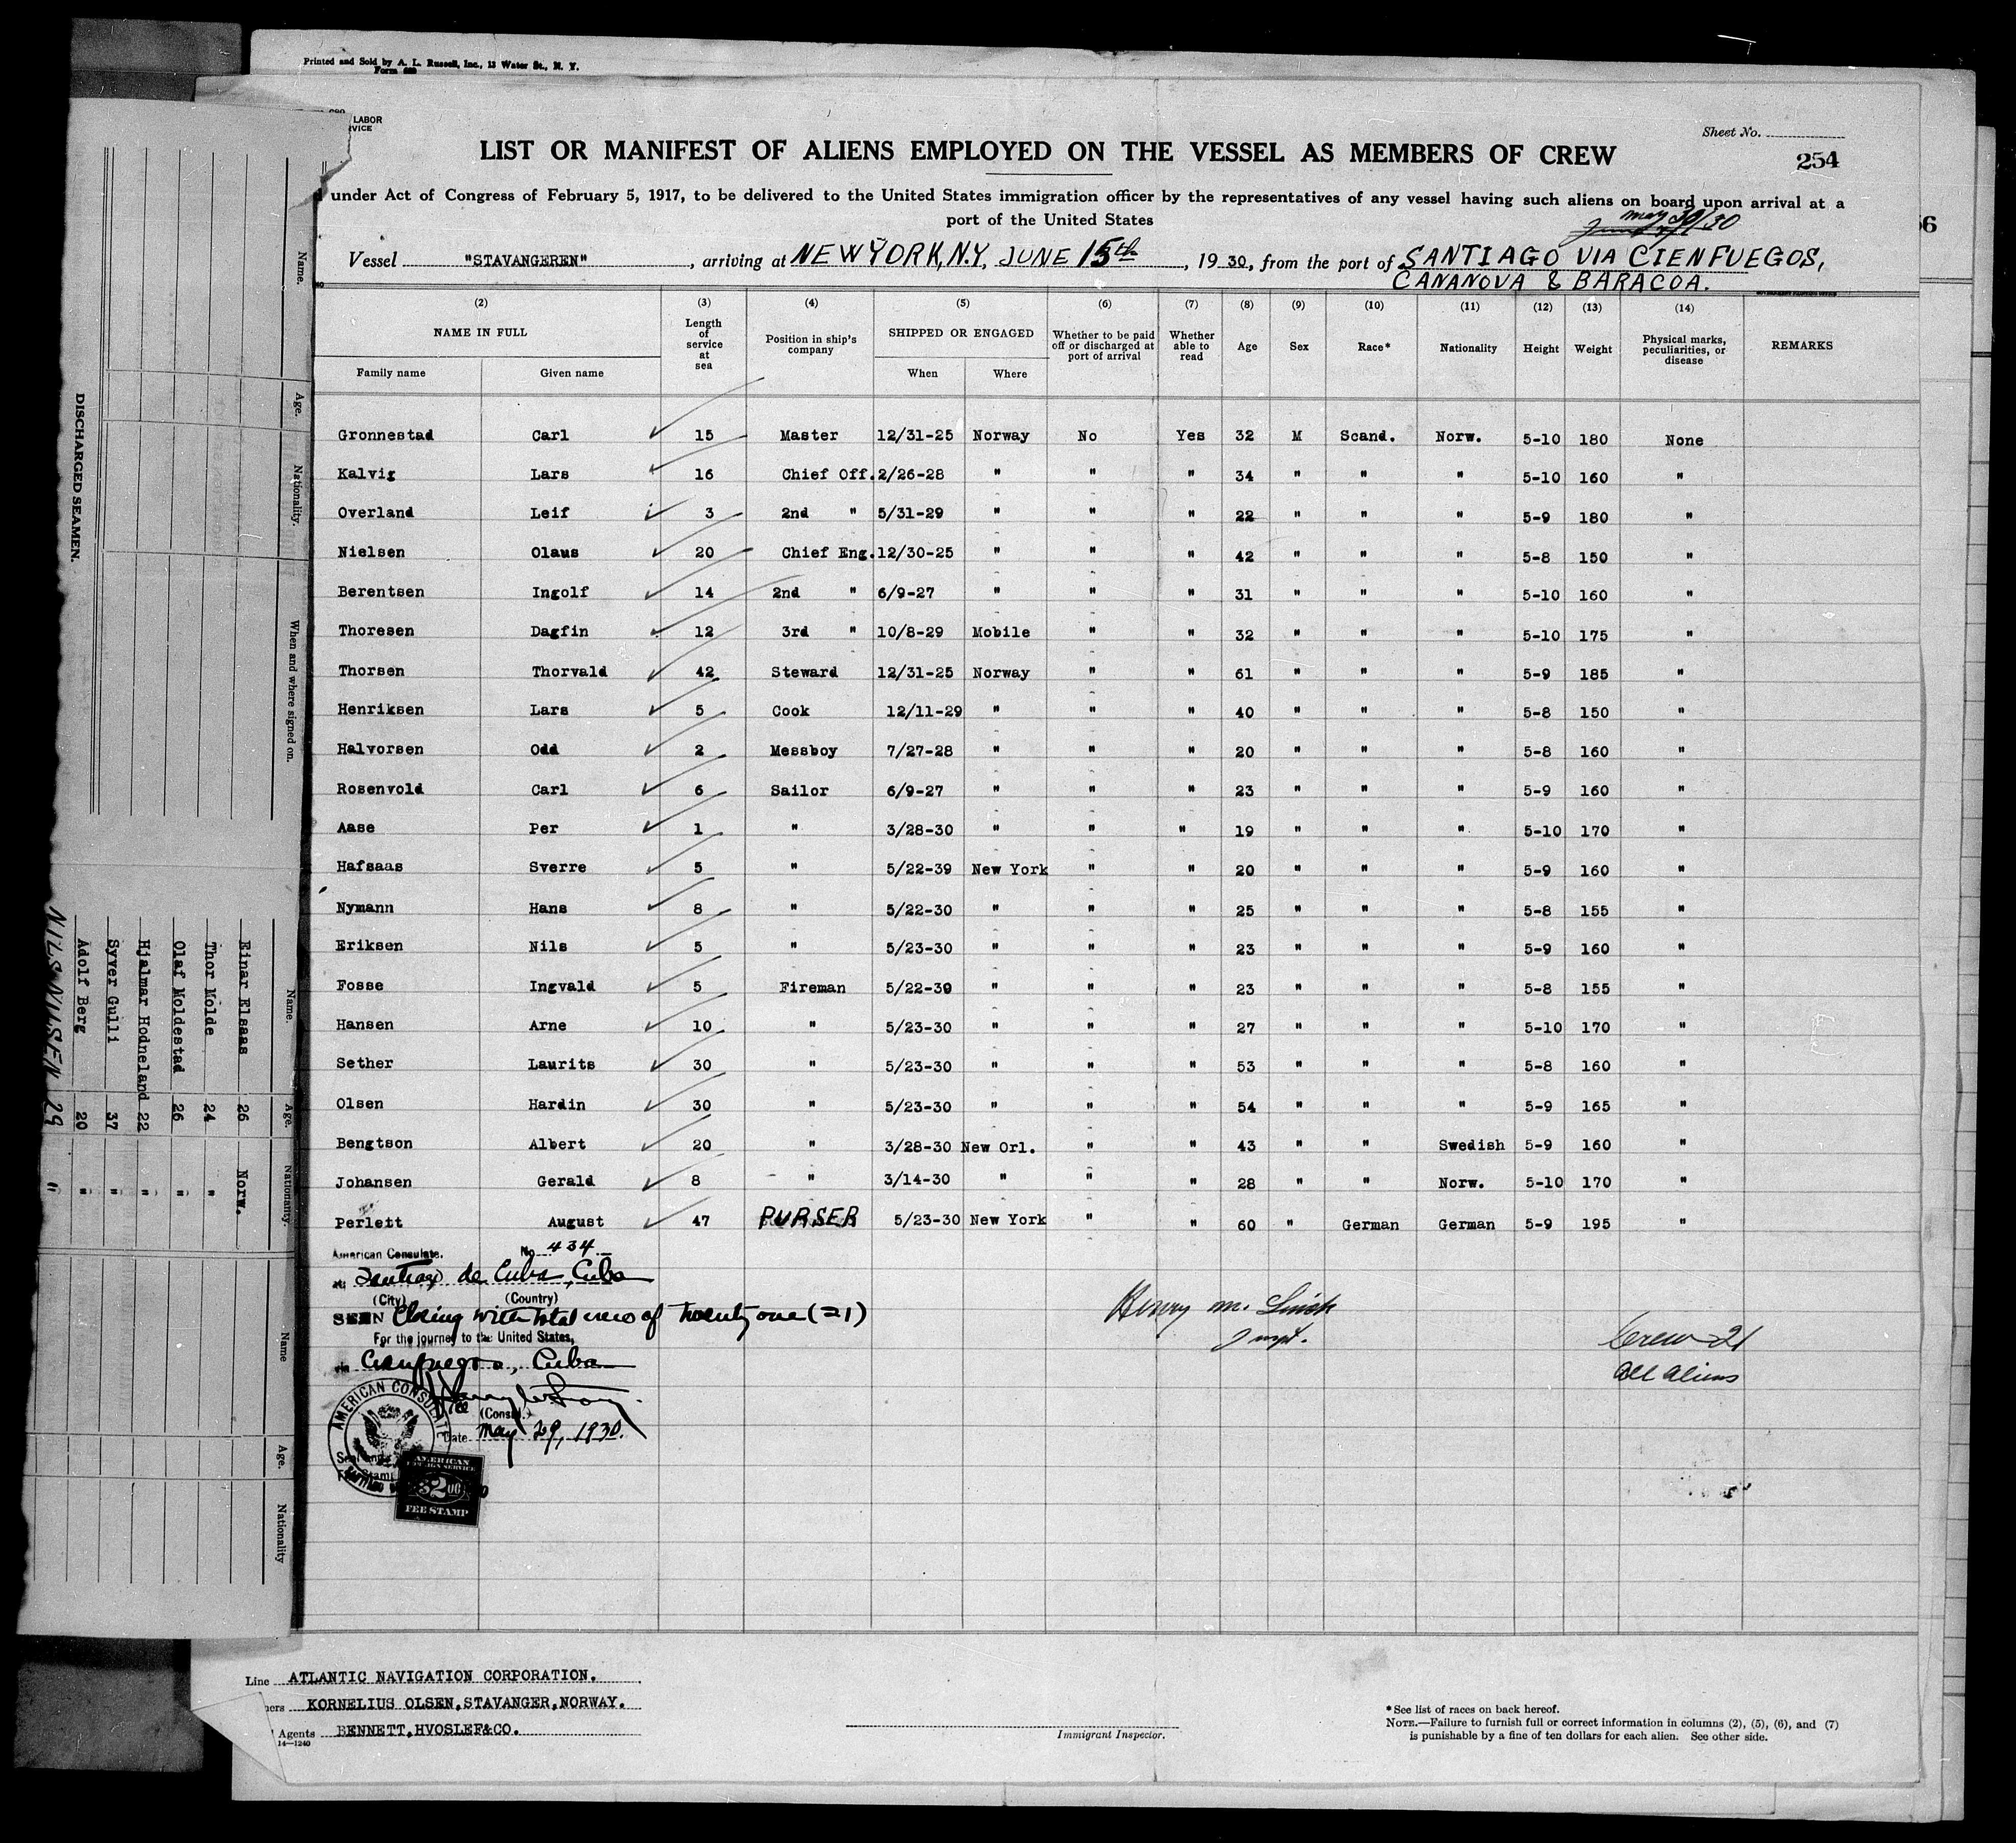 Printed and Sold by A. L. Russell, Inc., 13 Water St., N. Y.
LABOR
Sheet No.
LIST OR MANIFEST OF ALIENS EMPLOYED ON THE VESSEL AS MEMBERS OF CREW
254
under Act of Congress of February 5, 1917, to be delivered to the United States immigration officer by the representatives of any vessel having such aliens on board upon arrival at a
port of the United States
may 30/30
Vessel "STAVANGEREN", arriving at NEW YORK, N.Y, JUNE 15th, 1930, from the port of SANTIAGO VIA CIENFUEGOS,
CANANOVA & BARACOA.
(2) (3) (4) (5) (6) (7) (8) (9) (10) (11) (12) (13) (14)
NAME IN FULL Length of service at sea Position in ship's company SHIPPED OR ENGAGED Whether to be paid off or discharged at port of arrival Whether able to read Age Sex Race* Nationality Height Weight Physical marks, peculiarities, or disease REMARKS
Family name Given name When Where
Gronnestad Carl 15 Master 12/31-25 Norway No Yes 32 M Scand. Norw. 5-10 180 None
Kalvig Lars 16 Chief Off. 2/26-28 " " " 34 " " " 5-10 160 "
Overland Leif 3 2nd " 5/31-29 " " " 22 " " " 5-9 180 "
Nielsen Olaus 20 Chief Eng. 12/30-25 " " " 42 " " " 5-8 150 "
Berentsen Ingolf 14 2nd " 6/9-27 " " " 31 " " " 5-10 160 "
Thoresen Dagfin 12 3rd " 10/8-29 Mobile " " 32 " " " 5-10 175 "
Thorsen Thorvald 42 Steward 12/31-25 Norway " " 61 " " " 5-9 185 "
Henriksen Lars 5 Cook 12/11-29 " " " 40 " " " 5-8 150 "
Halvorsen Odd 2 Messboy 7/27-28 " " " 20 " " " 5-8 160 "
Rosenvold Carl 6 Sailor 6/9-27 " " " 23 " " " 5-9 160 "
Aase Per 1 " 3/28-30 " " " 19 " " " 5-10 170 "
Hafsaas Sverre 5 " 5/22-39 New York " " 20 " " " 5-9 160 "
Nymann Hans 8 " 5/22-30 " " " 25 " " " 5-8 155 "
Eriksen Nils 5 " 5/23-30 " " " 23 " " " 5-9 160 "
Fosse Ingvald 5 Fireman 5/22-39 " " " 23 " " " 5-8 155 "
Hansen Arne 10 " 5/23-30 " " " 27 " " " 5-10 170 "
Sether Laurits 30 " 5/23-30 " " " 53 " " " 5-8 160 "
Olsen Hardin 30 " 5/23-30 " " " 54 " " " 5-9 165 "
Bengtson Albert 20 " 3/28-30 New Orl. " " 43 " " Swedish 5-9 160 "
Johansen Gerald 8 " 3/14-30 " " " 28 " " Norw. 5-10 170 "
Perlett August 47 PURSER 5/23-30 New York " " 60 " German German 5-9 195 "
American Consulate. No 434
at Santiago de Cuba, Cuba
(City) (Country)
SEEN Closing with total crew of twenty one (21)
For the journey to the United States,
via Cienfuegos, Cuba
Vice
(Consul.)
Date May 29, 1930.
AMERICAN CONSULATE
AMERICAN
FOREIGN SERVICE
$2.00
FEE STAMP
Henry M.
Inspt.
Crew 21
All Aliens
Line ATLANTIC NAVIGATION CORPORATION.
KORNELIUS OLSEN, STAVANGER, NORWAY.
Agents BENNETT, HVOSLEF & CO.
14—1240
Immigrant Inspector.
*See list of races on back hereof.
NOTE.—Failure to furnish full or correct information in columns (2), (5), (6), and (7)
is punishable by a fine of ten dollars for each alien. See other side.
DISCHARGED SEAMEN.
Name. Age. Nationality. When and where signed on.
Name. Age. Nationality.
Einar Elsaas 26 Norw.
Thor Molde 24 "
Olaf Moldestad 26 "
Hjalmar Hodneland 22 "
Syver Gulli 37 "
Adolf Berg 20 "
NILS NILSEN 29 "
Name Age. Nationality